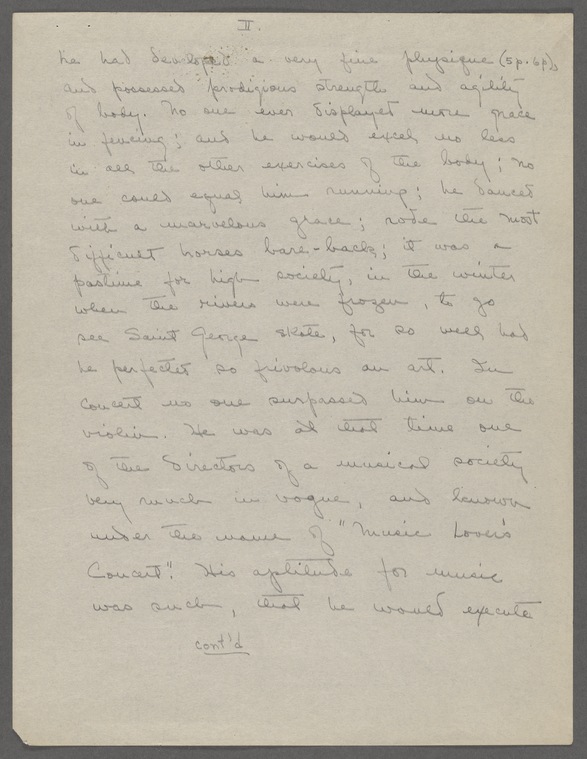 II.
he had developed a very fine physique (5p. 6p),
and possessed prodigious strength and agility
of body. No one ever displayed more grace
in fencing; and he would excel no less
in all the other exercises of the body; no
one could equal him running; he danced
with a marvelous grace; rode the most
difficult horses bare-back; it was a
pastime for high society, in the winter
when the rivers were frozen, to go
see Saint George skate, for so well had
he perfected so frivolous an art. In
concert no one surpassed him on the
violin. He was at that time one
of the directors of a musical society
very much in vogue, and known
under the name of "Music Lover's
Concert". His aptitude for music
was such, that he would execute
cont'd